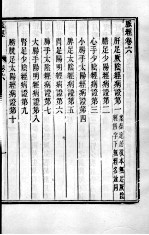 脈經卷六
肝足厥陰經病證第一
膽足少陽經病證第二
心手少陰經病證第三
小腸手太陽經病證第四
脾足太陰經病證第五
胃足陽明經病證第六
肺手太陰經病證第七
大腸手陽明經病證第八
腎足少陰經病證第九
膀胱足太陽經病證第十